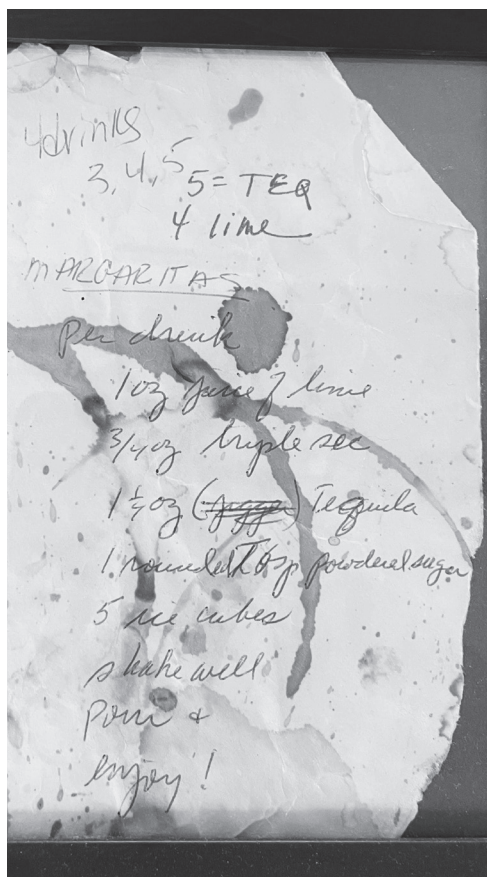 4 drinks
3, 4, 5
5 = TEQ
4 lime
MARGARITAS
per drink
1 oz juice of lime
3/4 oz triple sec
1 1/2 oz (jigger) Tequila
1 rounded Tbsp powdered sugar
5 ice cubes
shake well
Pour +
enjoy!